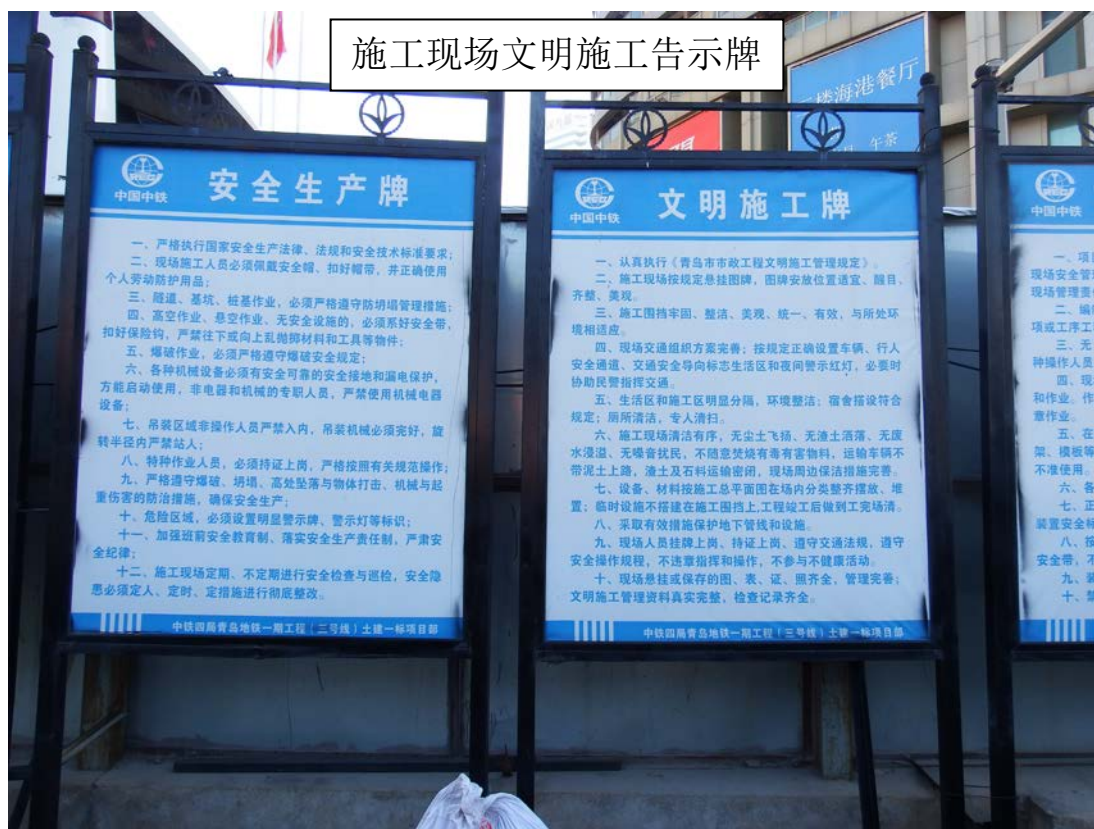 施工现场文明施工告示牌
中国中铁
安全生产牌
一、严格执行国家安全生产法律、法规和安全技术标准要求；
二、现场施工人员必须佩戴安全帽、扣好帽带，并正确使用
个人劳动防护用品；
三、隧道、基坑、桩基作业，必须严格遵守防坍塌管理措施；
四、高空作业、悬空作业、无安全设施的，必须系好安全带，
扣好保险钩，严禁往下或向上乱抛掷材料和工具等物件；
五、爆破作业，必须严格遵守爆破安全规定；
六、各种机械设备必须有安全可靠的安全接地和漏电保护，
方能启动使用，非电器和机械的专职人员，严禁使用机械电器
设备；
七、吊装区域非操作人员严禁入内，吊装机械必须完好，旋
转半径内严禁站人；
八、特种作业人员，必须持证上岗，严格按照有关规范操作；
九、严格遵守爆破、坍塌、高处坠落与物体打击、机械与起
重伤害的防治措施，确保安全生产；
十、危险区域，必须设置明显警示牌、警示灯等标识；
十一、加强班前安全教育制、落实安全生产责任制，严肃安
全纪律；
十二、施工现场定期、不定期进行安全检查与巡检，安全隐
患必须定人、定时、定措施进行彻底整改。
中铁四局青岛地铁一期工程（三号线）土建一标项目部
中国中铁
文明施工牌
一、认真执行《青岛市市政工程文明施工管理规定》。
二、施工现场按规定悬挂图牌，图牌安放位置适宜、醒目、
齐整、美观。
三、施工围挡牢固、整洁、美观、统一、有效、与所处环
境相适应。
四、现场交通组织方案完善；按规定正确设置车辆、行人
安全通道、交通安全导向标志生活区和夜间警示红灯，必要时
协助民警指挥交通。
五、生活区和施工区明显分隔，环境整洁；宿舍搭设符合
规定；厕所清洁，专人清扫。
六、施工现场清洁有序，无尘土飞扬、无渣土洒落、无废
水漫溢、无噪音扰民，不随意焚烧有毒有害物料，运输车辆不
带泥土上路，渣土及石料运输密闭，现场周边保洁措施完善。
七、设备、材料按施工总平面图在场内分类整齐摆放、堆
置；临时设施不搭建在施工围挡上,工程竣工后做到工完场清。
八、采取有效措施保护地下管线和设施。
九、现场人员挂牌上岗、持证上岗、遵守交通法规、遵守
安全操作规程，不违章指挥和操作，不参与不健康活动。
十、现场悬挂或保存的图、表、证、照齐全、管理完善；
文明施工管理资料真实完整，检查记录齐全。
中铁四局青岛地铁一期工程（三号线）土建一标项目部
中国中铁
一、项
现场安全管
现场管理责
二、编
项或工序工
三、无
种操作人员
四、现
和作业。作
章作业。
五、在
架、模板等
不准使用。
六、各
七、正
装置安全标
八、按
安全带，不
九、装
十、禁
楼海港餐厅
午茶